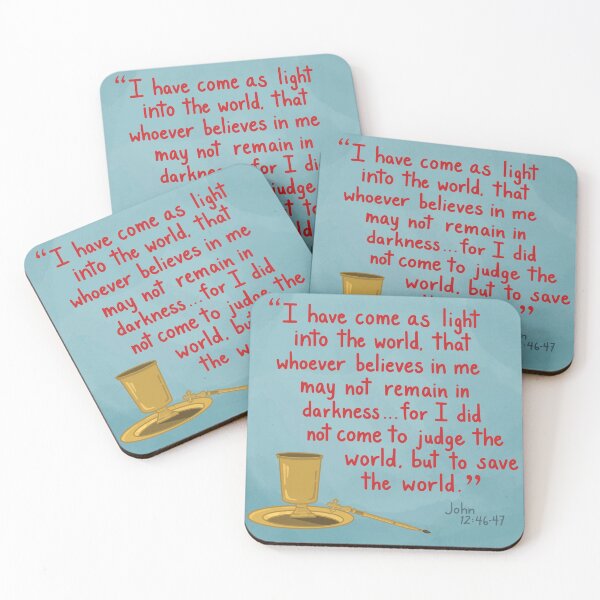 “I have come as light
into the world, that
whoever believes in me
may not remain in
for I
judge
to
“I have come as light
into the world, that
whoever believes in me
may not remain in
darkness...for I did
not come to judge the
world, but to save
”
46-47
“I have come as light
into the world, that
whoever believes in me
may not remain in
darkness...for I did
not come to judge the
world, but
the
“I have come as light
into the world, that
whoever believes in me
may not remain in
darkness...for I did
not come to judge the
world, but to save
the world.”
John
12:46-47